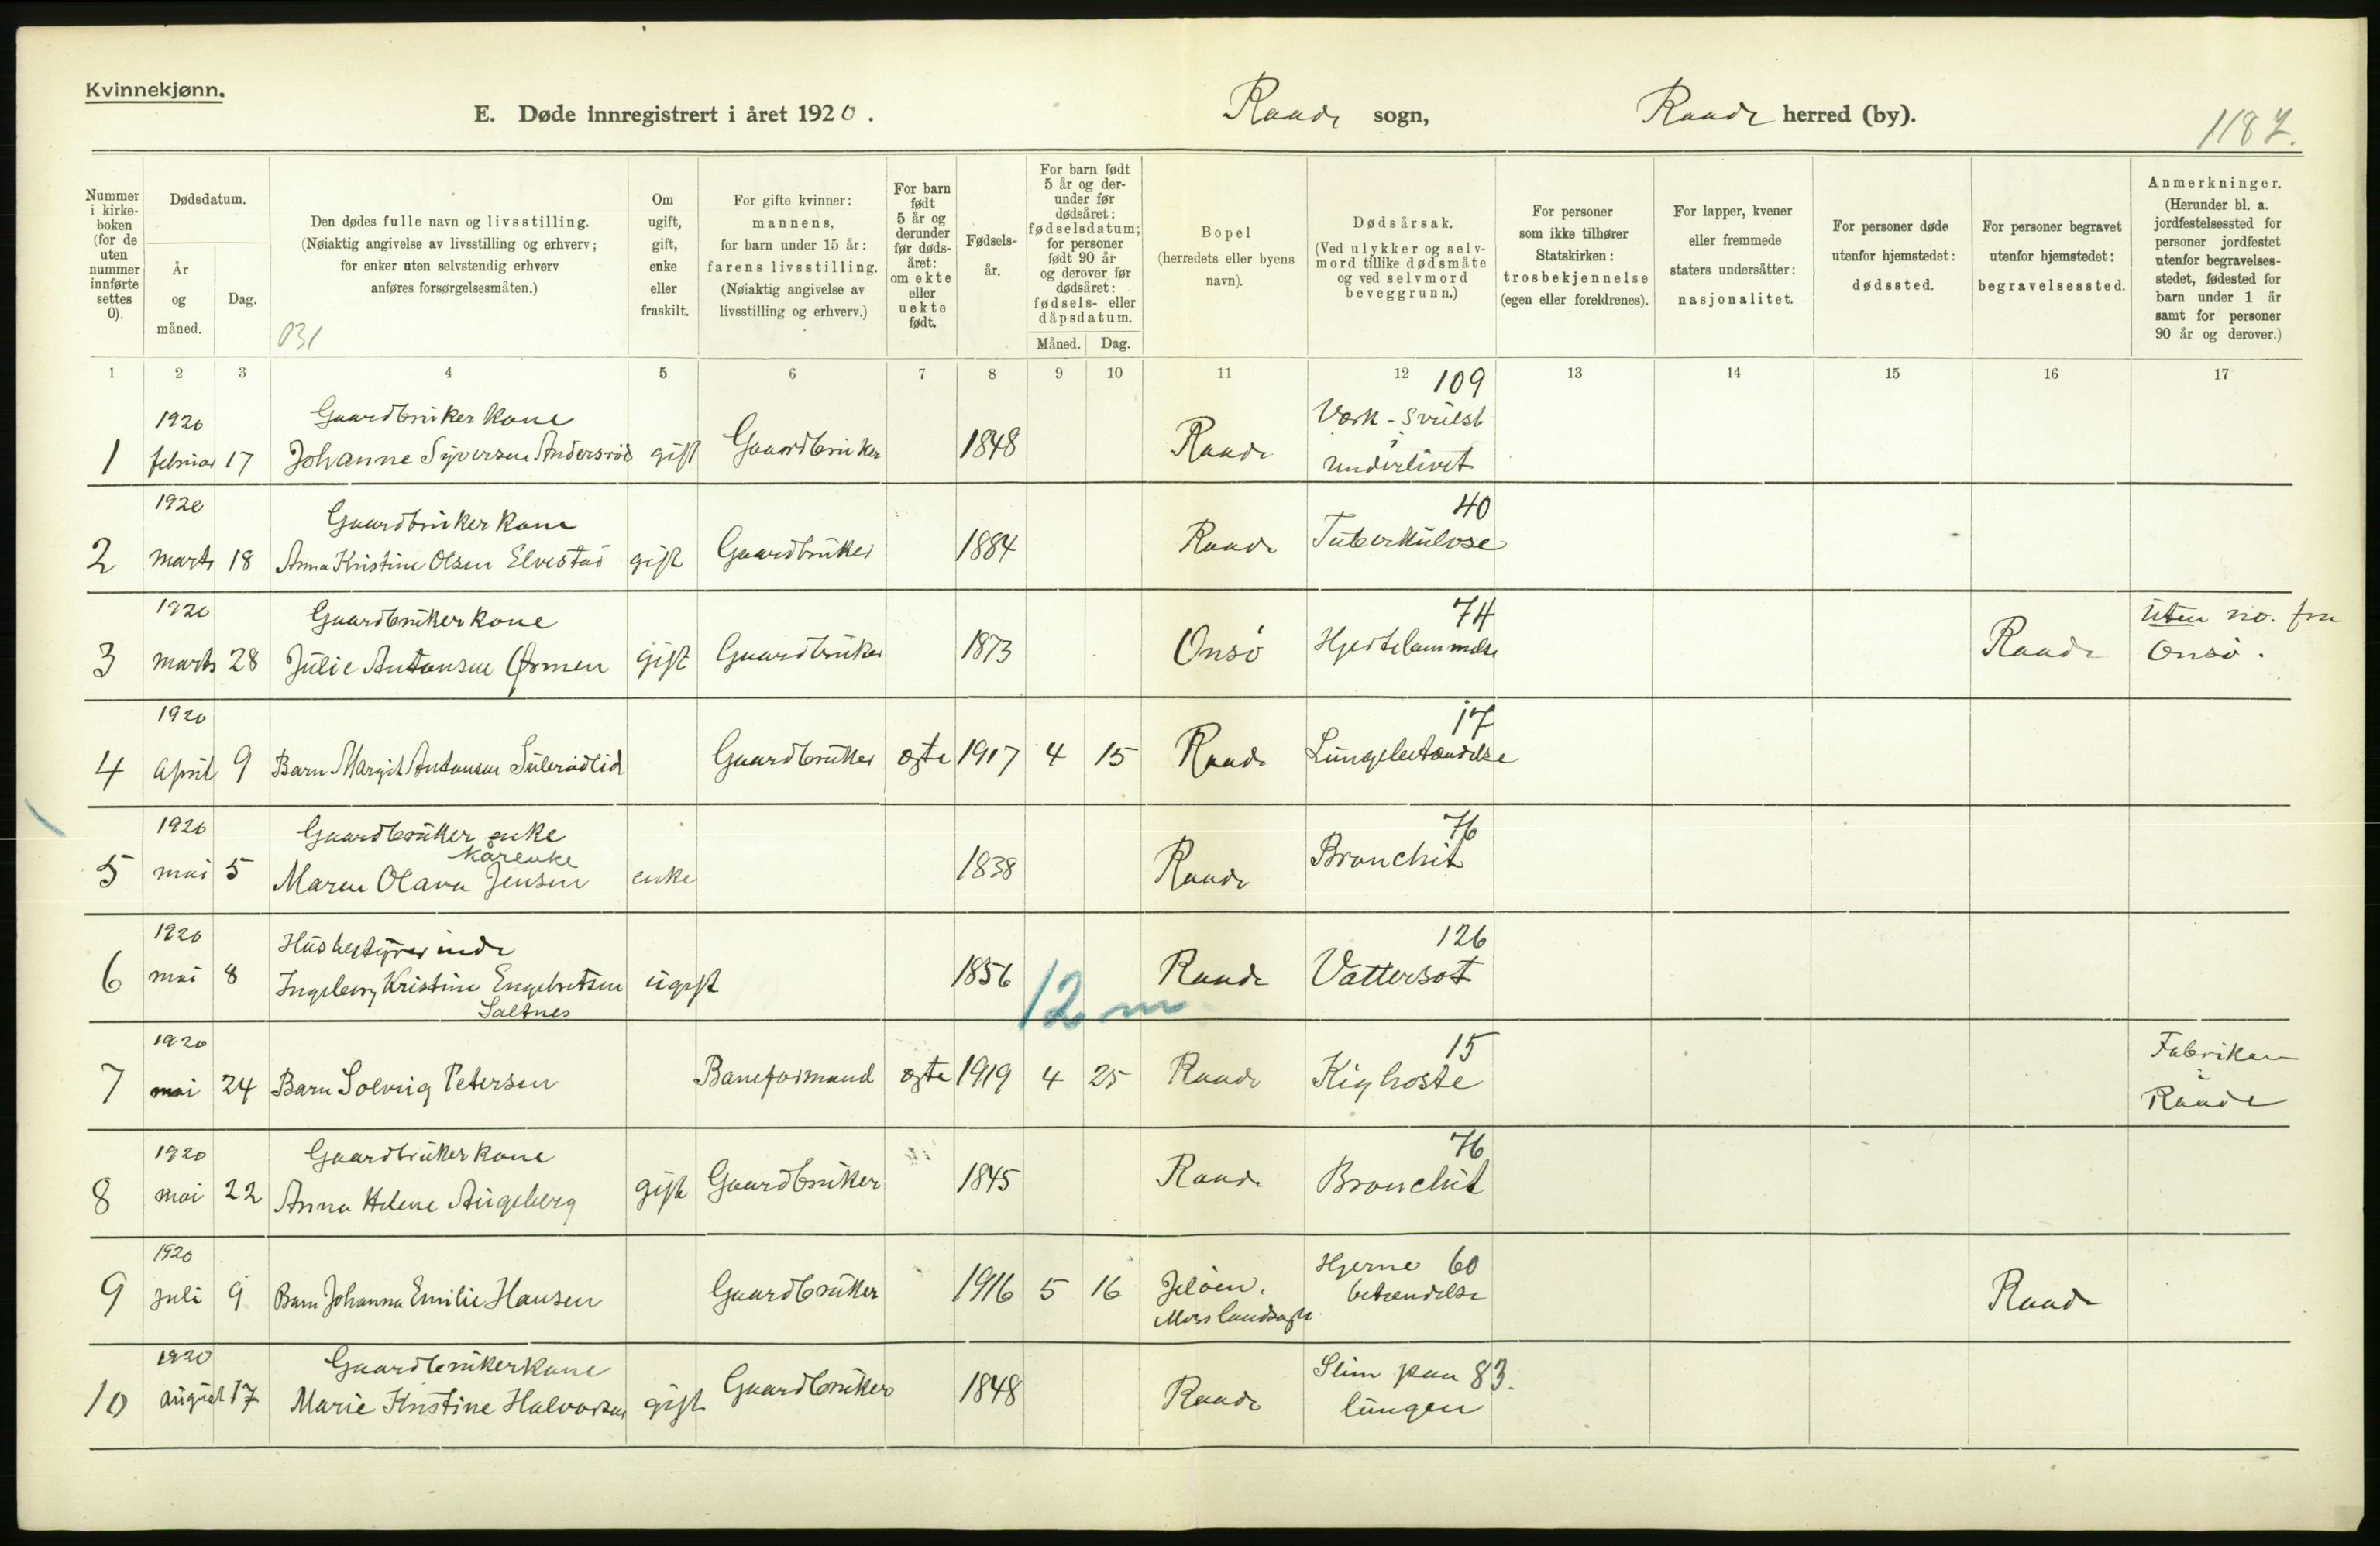 Kvinnekjønn.
E. Døde innregistrert i året 1920.
Raade sogn,
Raade herred (by).
1187.
Nummer i kirke-boken (for de uten nummer innførte settes 0).
Dødsdatum.
År og måned.
Dag.
Den dødes fulle navn og livsstilling.
(Nøiaktig angivelse av livsstilling og erhverv;
for enker uten selvstendig erhverv
anføres forsørgelsesmåten.)
031
Om ugift, gift, enke eller fraskilt.
For gifte kvinner:
mannens,
for barn under 15 år:
farens livsstilling.
(Nøiaktig angivelse av
livsstilling og erhverv.)
For barn født 5 år og derunder før døds-året: om ekte eller uekte født.
Fødsels-år.
For barn født 5 år og der-under før dødsåret: fødselsdatum; for personer født 90 år og derover før dødsåret: fødsels- eller dåpsdatum.
Måned.
Dag.
Bopel
(herredets eller byens
navn).
Dødsårsak.
(Ved ulykker og selv-
mord tillike dødsmåte
og ved selvmord
beveggrunn.)
For personer
som ikke tilhører
Statskirken:
trosbekjennelse
(egen eller foreldrenes).
For lapper, kvener
eller fremmede
staters undersåtter:
nasjonalitet.
For personer døde
utenfor hjemstedet:
dødssted.
For personer begravet
utenfor hjemstedet:
begravelsessted.
Anmerkninger.
(Herunder bl. a.
jordfestelsessted for
personer jordfestet
utenfor begravelses-
stedet, fødested for
barn under 1 år
samt for personer
90 år og derover.)
1 2 3 4 5 6 7 8 9 10 11 12 13 14 15 16 17
1920 Gaardbruker kone 109
Værk-svulst
1 februar 17 Johanne Syversen Andersrød gift Gaardbruker 1848 Raade i
underlivet
1920 Gaardbruker kone 40
2 marts 18 Anna Kristine Olsen Elvestad gift Gaardbruker 1884 Raade Tuberkulose
1920 Gaardbrukerkone 74 uten no. fra
3 marts 28 Julie Antonsen Ørmen gift Gaardbruker 1873 Onsø Hjertelammelse Raade Onsø.
1920 17
4 april 9 Barn Margit Antonsen Gaardbruker ægte 1917 4 15 Raade Lungebetændelse
1920 Gaardbruker enke 76
kårenke
5 mai 5 Maren Olava Jensen enke 1838 Raade Bronchit
1920 Husbestyrerinde 126
6 mai 8 Ingeborg Kristine Engebretsen ugift 1856 Raade Vattersot
Saltnes
12 m
1920 15 Fabriken
7 mai 24 Barn Solveig Petersen Baneformand ægte 1919 4 25 Raade Kighoste i
Raade
1920 Gaardbrukerkone 76
8 mai 22 Anna Helene Augeberg gift Gaardbruker 1845 Raade Bronchit
1920 Hjerne 60
9 juli 9 Barn Johanna Emilie Hansen Gaardbruker 1916 5 16 Jeløen. betændelse Raade
Moss landsogn
1920 Gaardbrukerkone Slim paa 83.
10 august 17 Marie Kristine Halvorsen gift Gaardbruker 1848 Raade lungen